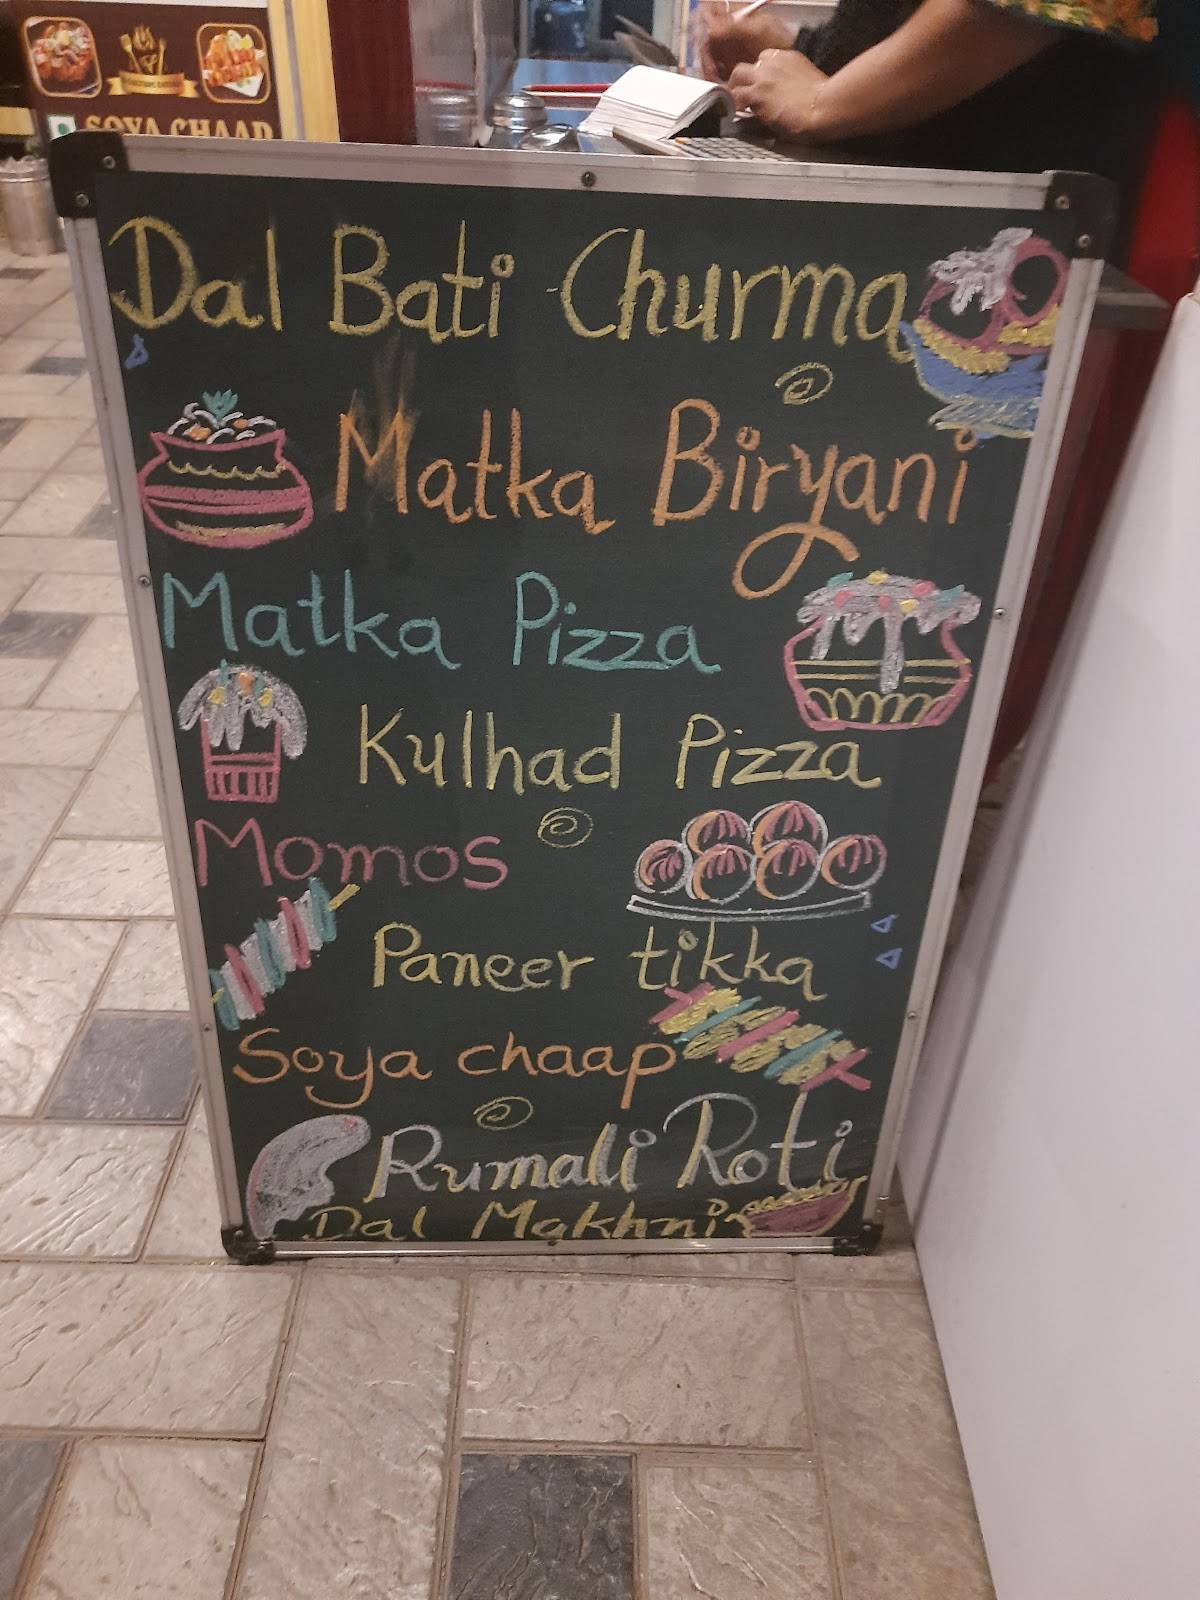 SOYA CHAAP
Dal Bati Churma
Matka Biryani
Matka Pizza
Kulhad Pizza
Momos
Paneer tikka
Soya chaap
Rumali Roti
Dal Makhni